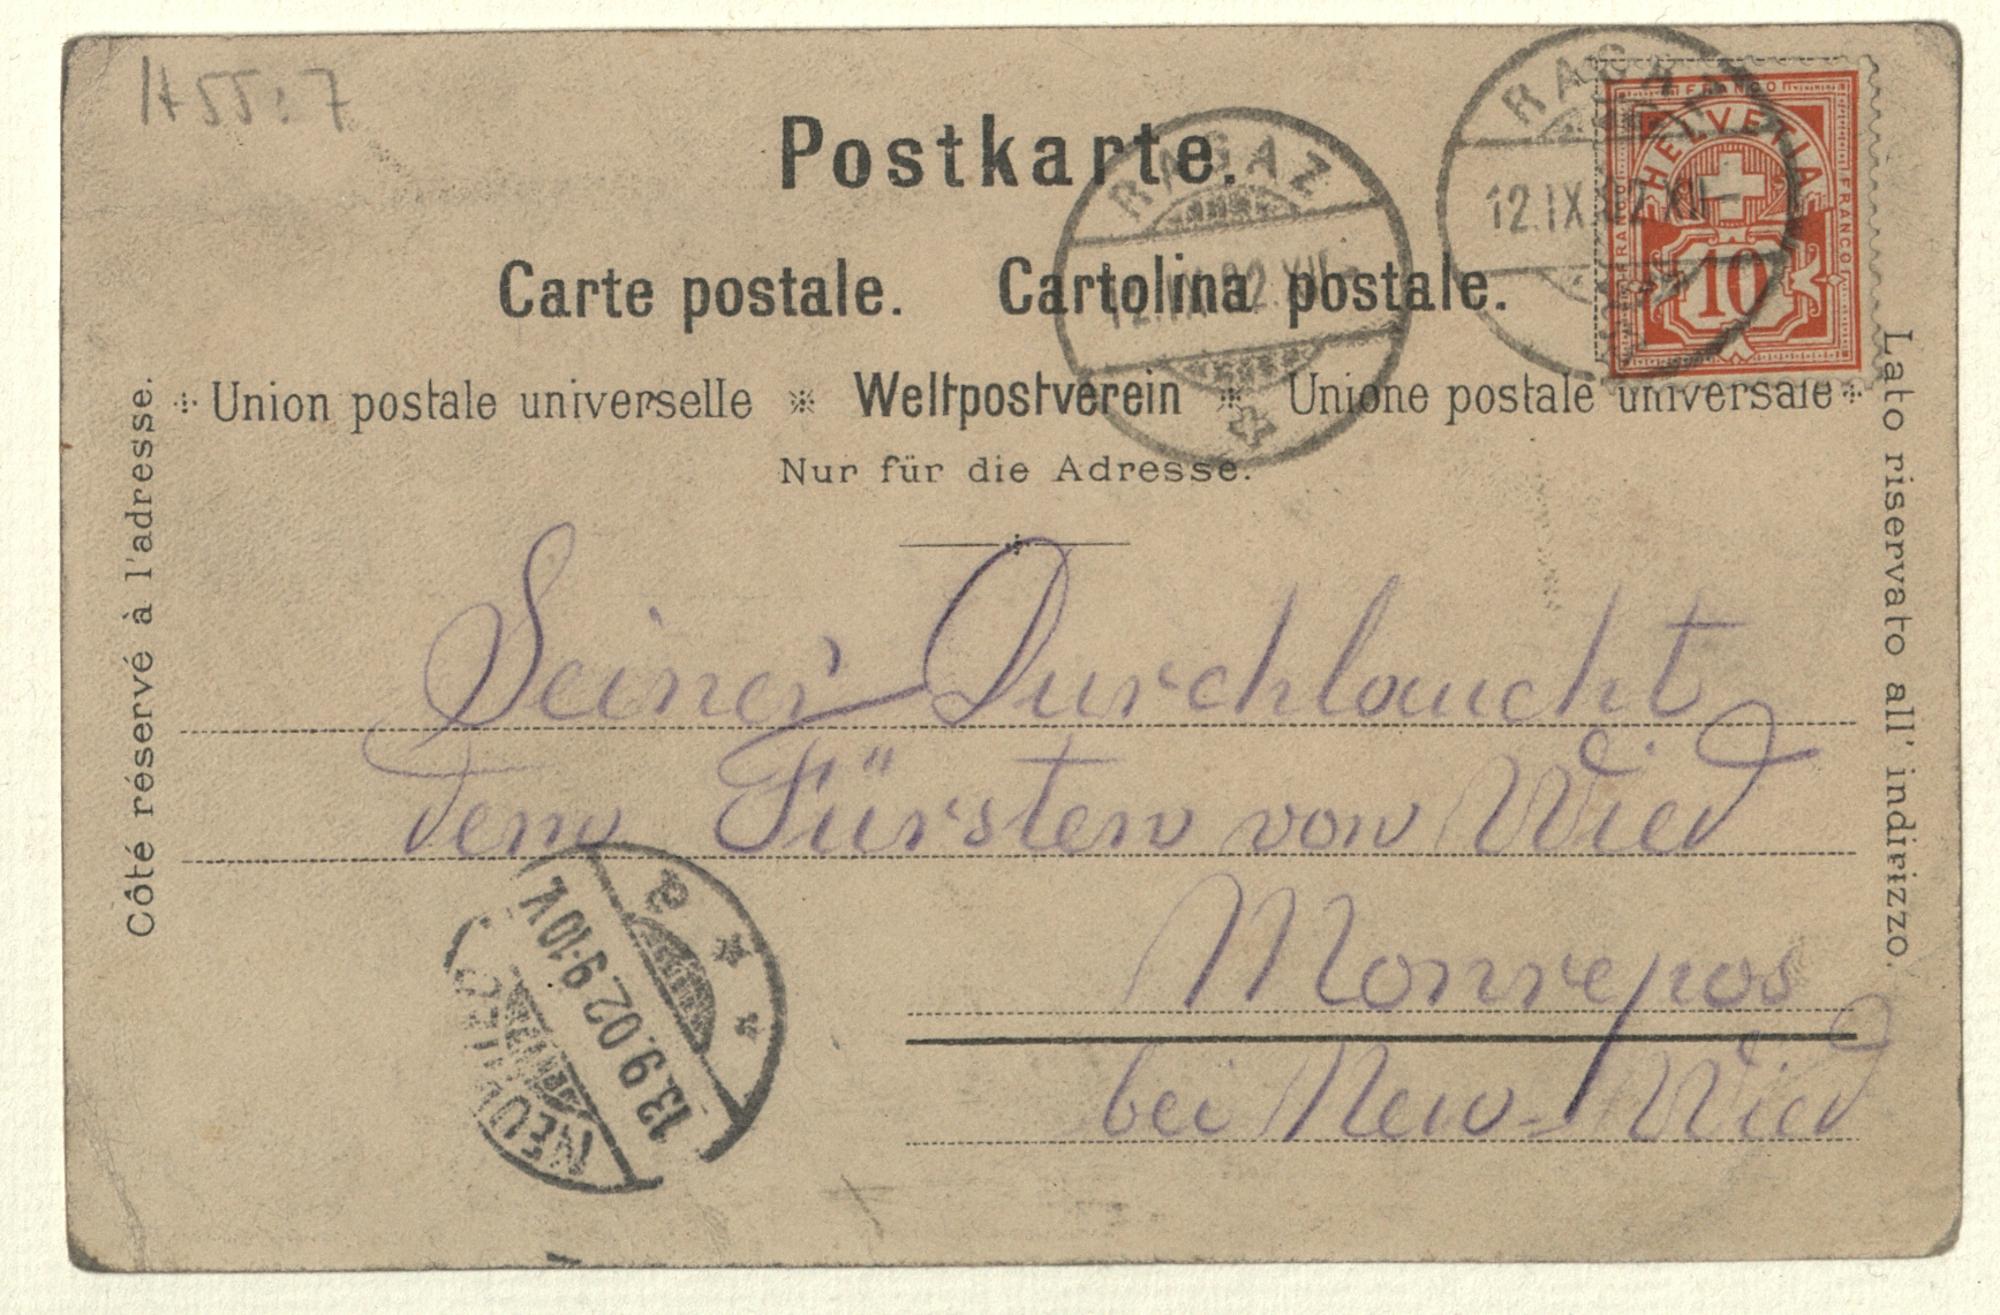 H55:7
Postkarte.
RAGAZ
RAGAZ
12.IX.02.XII-
12.IX.02.XII-
FRANCO
HELVETIA
FRANCO
FRANCO
10
Carte postale. Cartolina postale.
Union postale universelle Weltpostverein Unione postale universale
Nur für die Adresse.
Côté réservé à l'adresse.
Lato riservato all' indirizzo.
Seiner Durchlaucht
dem Fürsten von Wied
Monrepos
bei Neu-Wied
NEUWIED
13.9.02.9-10V.
a